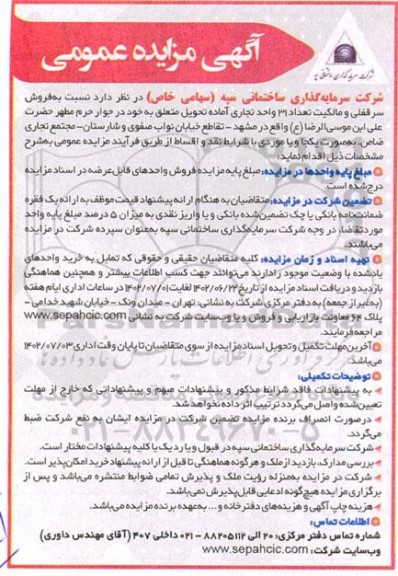 آگهی مزایده عمومی
شرکت سرمایه‌گذاری ساختمانی سپه (سهامی خاص) در نظر دارد نسبت به‌فروش
سرقفلی و مالکیت تعداد ۳۱ واحد تجاری آماده تحویل متعلق به خود در جوار حرم مطهر حضرت
علی ابن موسی‌الرضا (ع) واقع در مشهد - تقاطع خیابان نواب صفوی و شارستان - مجتمع تجاری
ضامن، به‌صورت یکجا و یا موردی با شرایط نقد و اقساط از طریق فرآیند مزایده عمومی به‌شرح
مشخصات ذیل اقدام نماید:
مبلغ پایه واحدها در مزایده: مبلغ پایه مزایده فروش واحدهای قابل عرضه در اسناد مزایده
درج شده است.
تضمین شرکت در مزایده: متقاضیان به هنگام ارائه پیشنهاد قیمت موظف به ارائه یک فقره
ضمانت‌نامه بانکی یا چک تضمین‌شده بانکی و یا واریز نقدی به میزان ۵ درصد مبلغ پایه واحد
موردتقاضا، در وجه شرکت سرمایه‌گذاری ساختمانی سپه به‌عنوان سپرده شرکت در مزایده
می‌باشند.
تهیه اسناد و زمان مزایده: کلیه متقاضیان حقیقی و حقوقی که تمایل به خرید واحدهای
یادشده با وضعیت موجود را دارند می‌توانند جهت کسب اطلاعات بیشتر و همچنین هماهنگی
بازدید و دریافت اسناد مزایده از تاریخ ۱۴۰۲/۰۶/۲۲ لغایت ۱۴۰۲/۰۷/۰۱ در ساعات اداری ایام هفته
(به‌غیر از جمعه) به دفتر مرکزی شرکت به نشانی: تهران - میدان ونک - خیابان شهید خدامی -
پلاک ۶۴ معاونت بازاریابی و فروش و یا وب‌سایت شرکت به نشانی www.sepahcic.com
مراجعه فرمایند.
آخرین مهلت تکمیل و تحویل اسناد مزایده از سوی متقاضیان تا پایان وقت اداری ۱۴۰۲/۰۷/۰۳
می‌باشد.
توضیحات تکمیلی:
به پیشنهادات فاقد شرایط مذکور و پیشنهادات مبهم و پیشنهاداتی که خارج از مهلت
تعیین‌شده واصل می‌گردد ترتیب اثر داده نخواهد شد.
درصورت انصراف برنده مزایده تضمین شرکت در مزایده ایشان به نفع شرکت ضبط
می‌گردد.
شرکت سرمایه‌گذاری ساختمانی سپه در قبول و یا رد یک یا کلیه پیشنهادات مختار است.
بررسی مدارک، بازدید از ملک و هرگونه هماهنگی تا قبل از ارائه پیشنهاد خرید امکان‌پذیر است.
شرکت در مزایده به‌منزله رؤیت ملک و پذیرش تمامی ضوابط منتشره می‌باشد و پس از
برگزاری مزایده هیچ‌گونه ادعایی قابل پذیرش نمی‌باشد.
هزینه چاپ آگهی و هزینه‌های دفترخانه و ... به‌عهده برنده مزایده می‌باشد.
اطلاعات تماس:
شماره تماس دفتر مرکزی: ۲۰ الی ۸۸۲۰۵۱۱۲ - ۰۲۱ داخلی ۴۰۷ (آقای مهندس داوری)
وب‌سایت شرکت: www.sepahcic.com